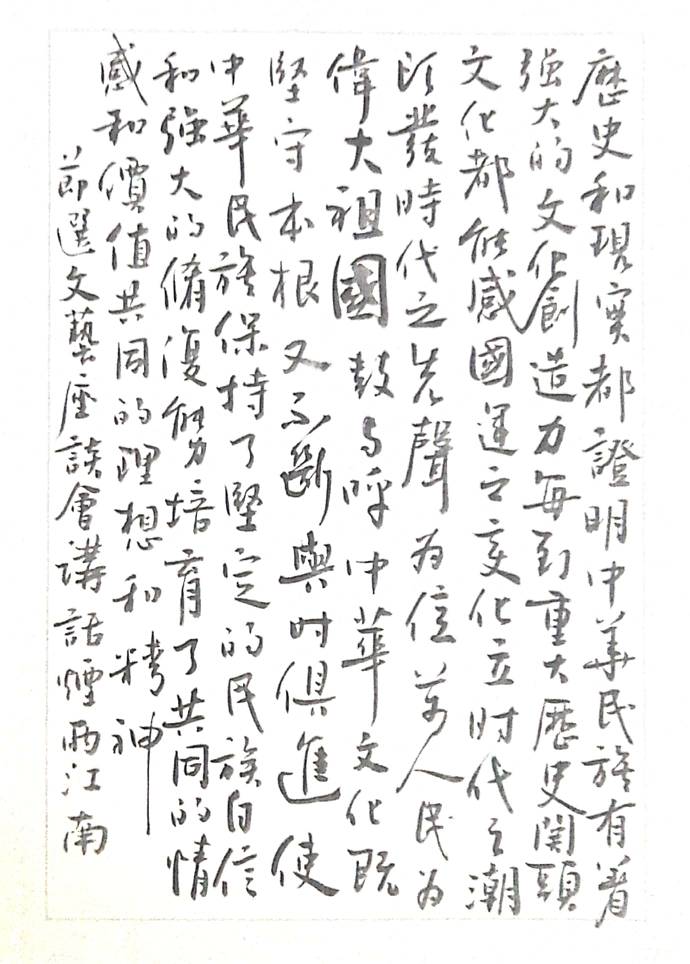 歷史和現實都證明中華民族有着
强大的文化創造力每到重大歷史関頭
文化都能感國運之变化立时代之潮
頭發時代之先聲为億萬人民为
偉大祖國鼓与呼中華文化既
堅守本根又不斷與时俱進使
中華民族保持了堅定的民族自信
和强大的脩復能力培育了共同的情
感和價值共同的理想和精神
節選文藝座談會講話煙雨江南